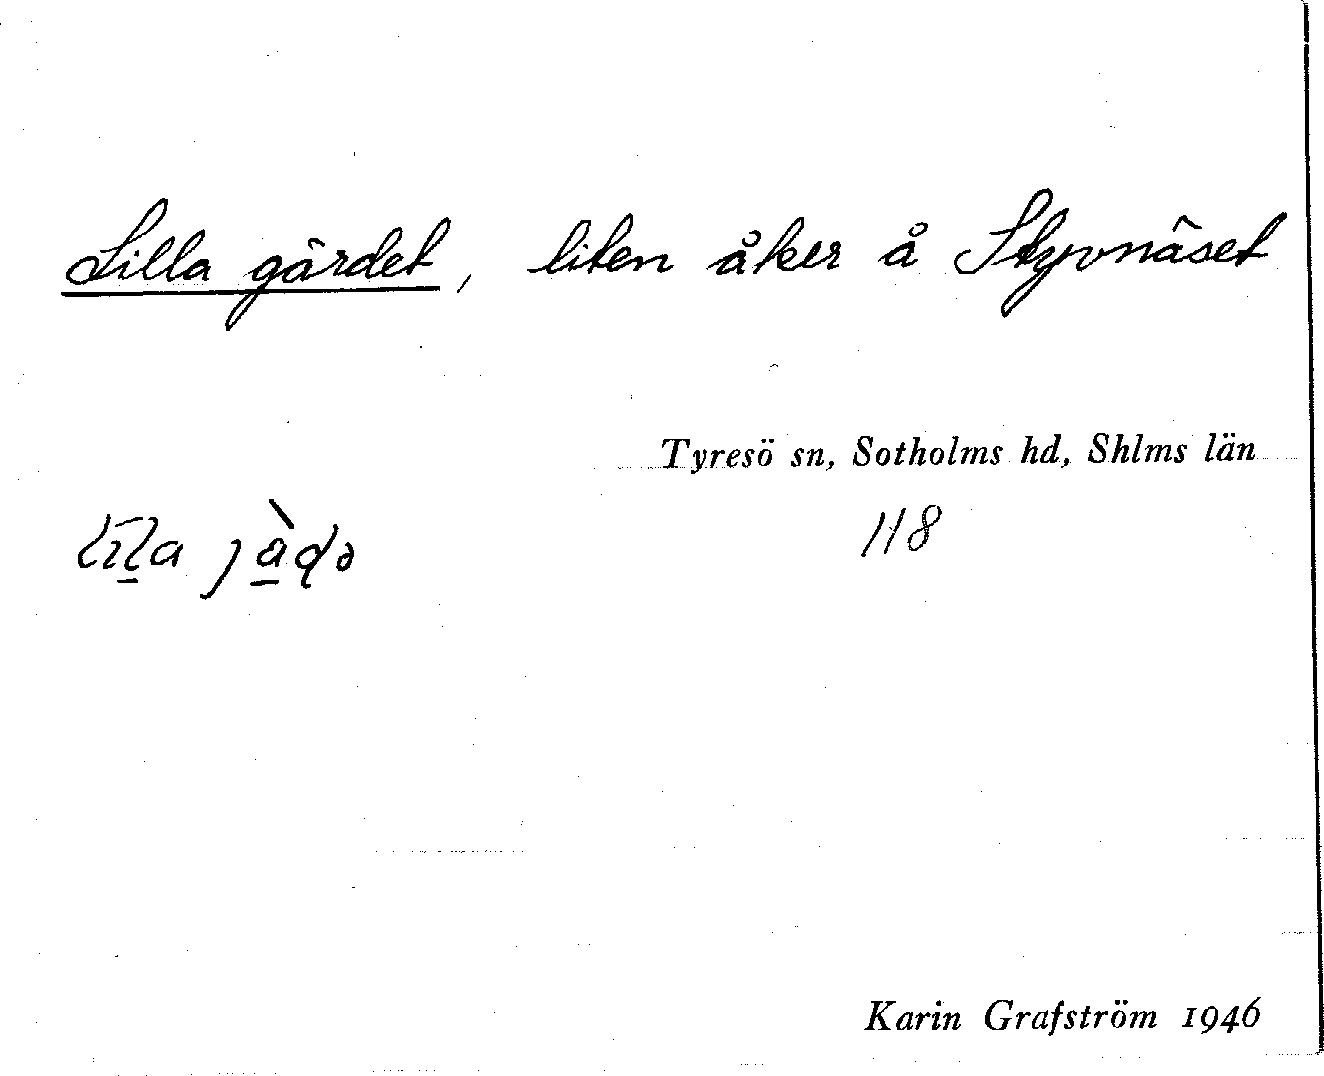 Lilla gärdet, liten åker å Styvnäset
Tyresö sn, Sotholms hd, Shlms län
118
Karin Grafström 1946